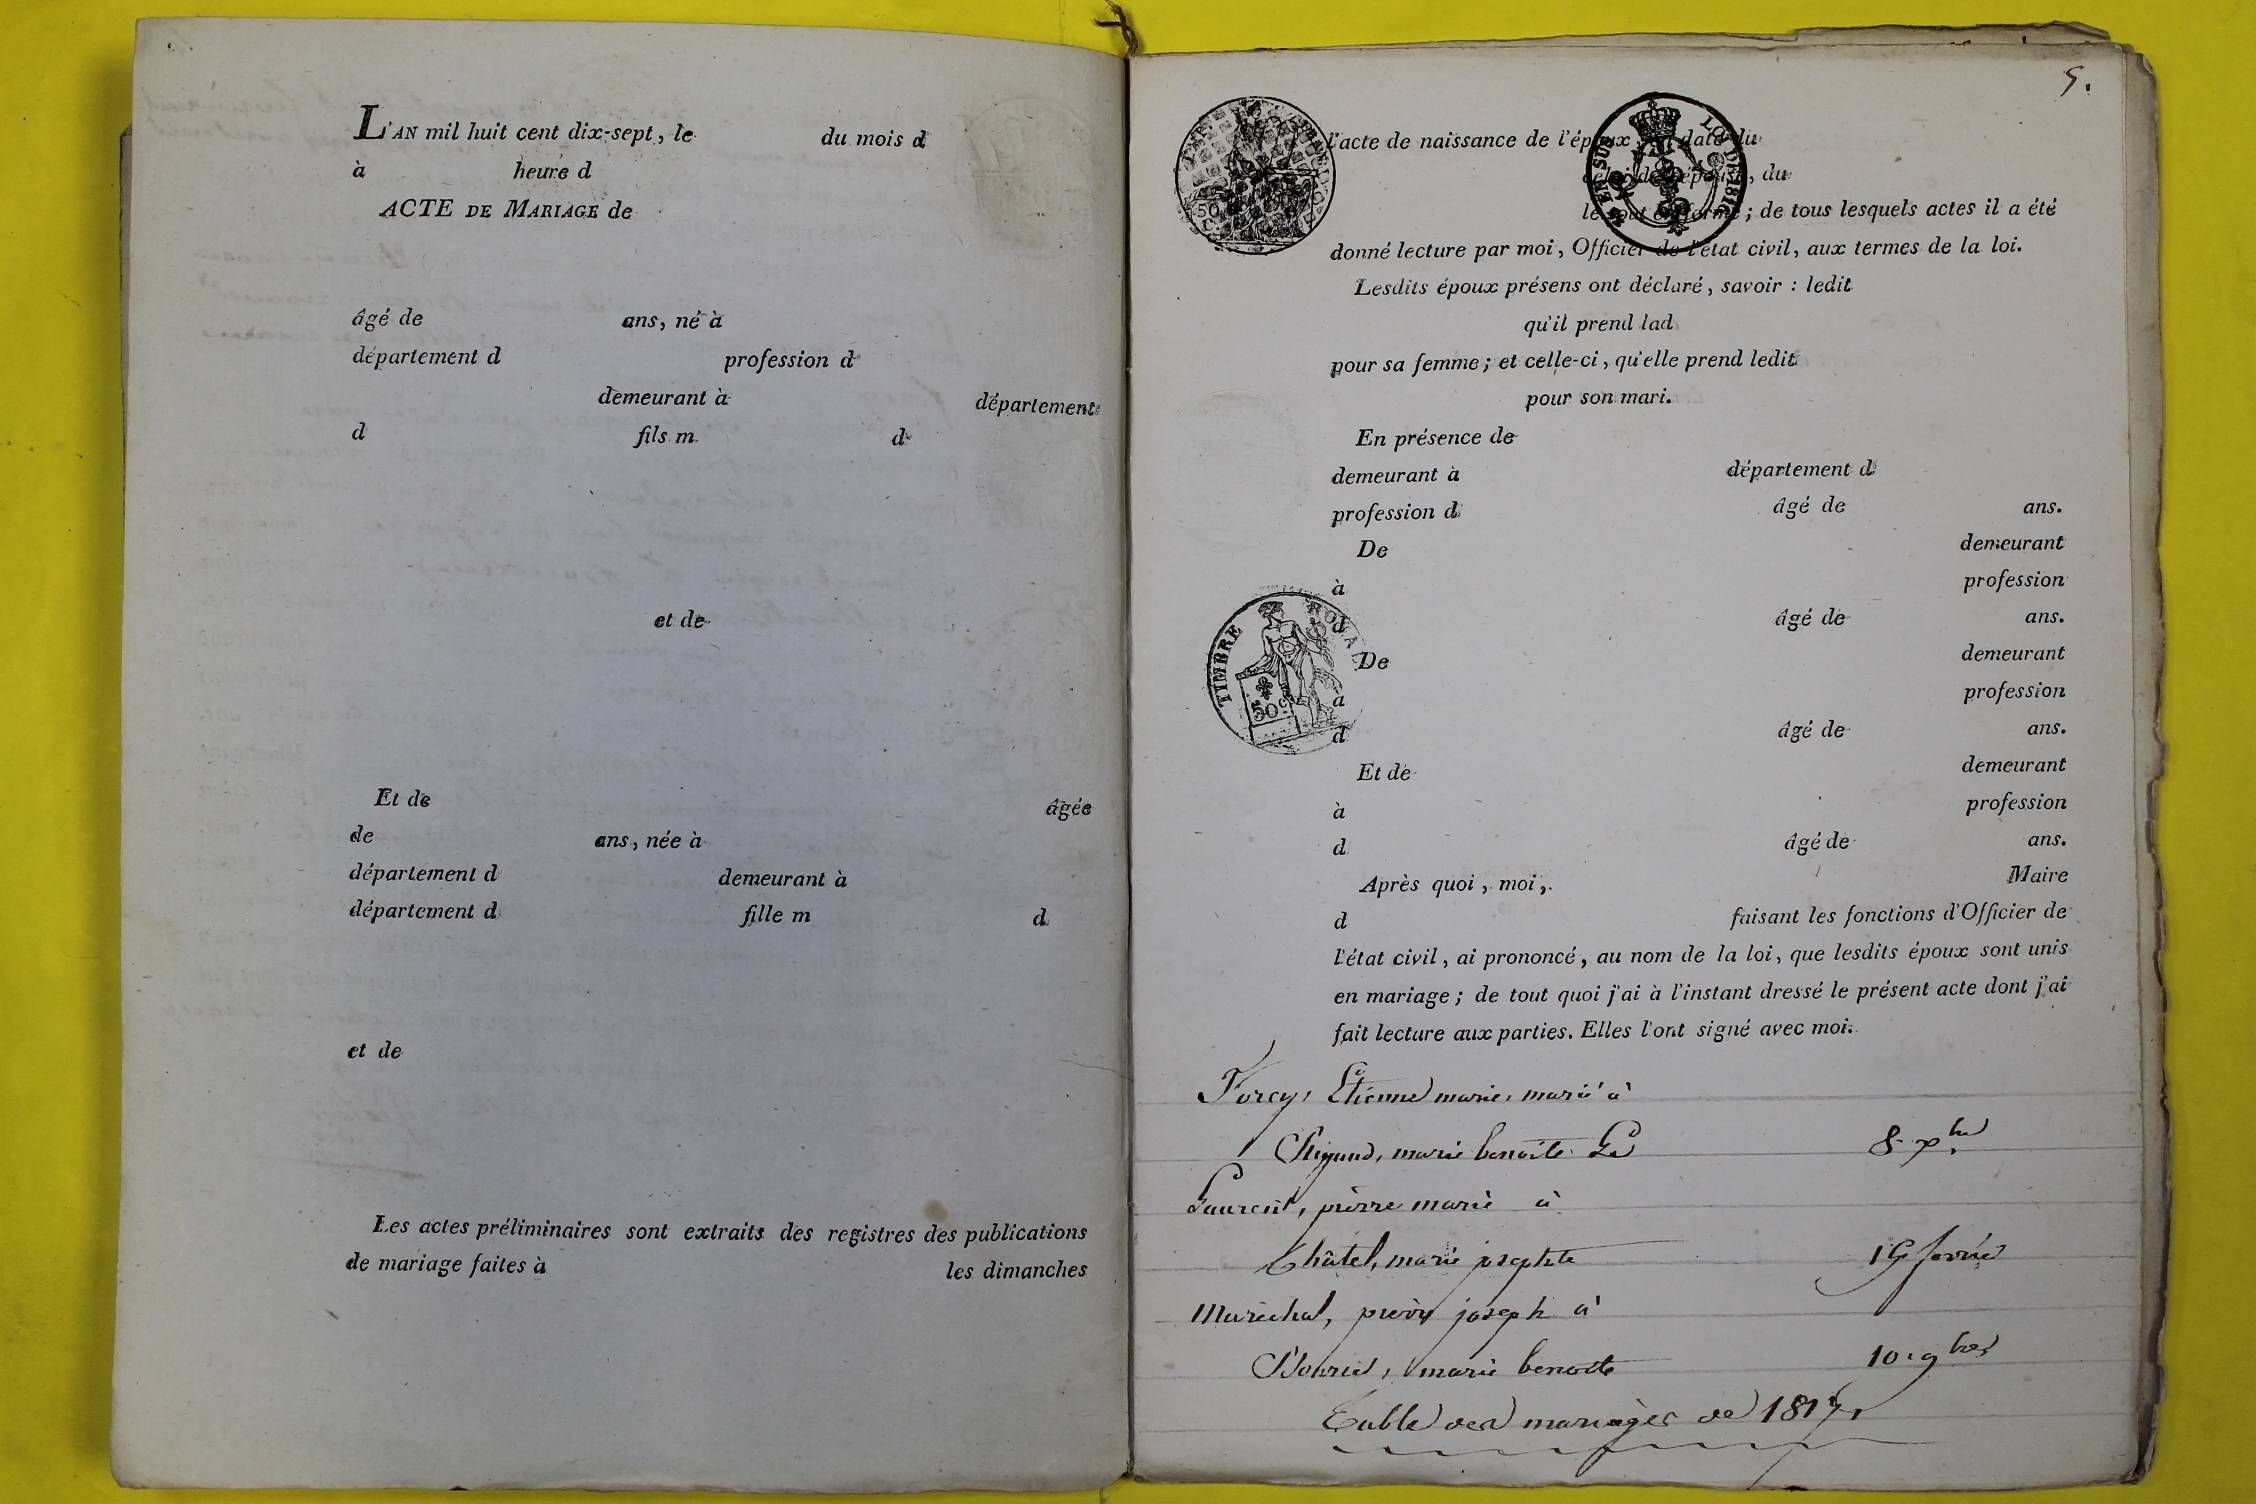 L'AN mil huit cent dix-sept, le du mois d
à heure d
ACTE DE MARIAGE de
âgé de ans, né à
département d profession d
demeurant à département
d fils m d
et de
Et de âgée
de ans, née à
département d demeurant à
département d fille m d
et de
Les actes préliminaires sont extraits des registres des publications
de mariage faites à les dimanches
5.
l'acte de naissance de l'époux date du
de l'épouse, du
le tout en forme; de tous lesquels actes il a été
donné lecture par moi, Officier de l'état civil, aux termes de la loi.
Lesdits époux présens ont déclaré, savoir : ledit
qu'il prend lad
pour sa femme; et celle-ci, qu'elle prend ledit
pour son mari.
En présence de
demeurant à département d
profession d âgé de ans.
De demeurant
à profession
d âgé de ans.
De demeurant
à profession
d âgé de ans.
Et de demeurant
à profession
d âgé de ans.
Après quoi, moi, Maire
d faisant les fonctions d'Officier de
l'état civil, ai prononcé, au nom de la loi, que lesdits époux sont unis
en mariage; de tout quoi j'ai à l'instant dressé le présent acte dont j'ai
fait lecture aux parties. Elles l'ont signé avec moi.
TIMBRE ROYAL
50 c
LOI DE 1816
Etienne marie, marié à
marie benoite 8 xbre
Laurent, pierre marie à
Châtel, marie josephte 19 fevrier
Maréchal, pierre joseph à
marie benoite 10. 9bre
Table des mariages de 1817.